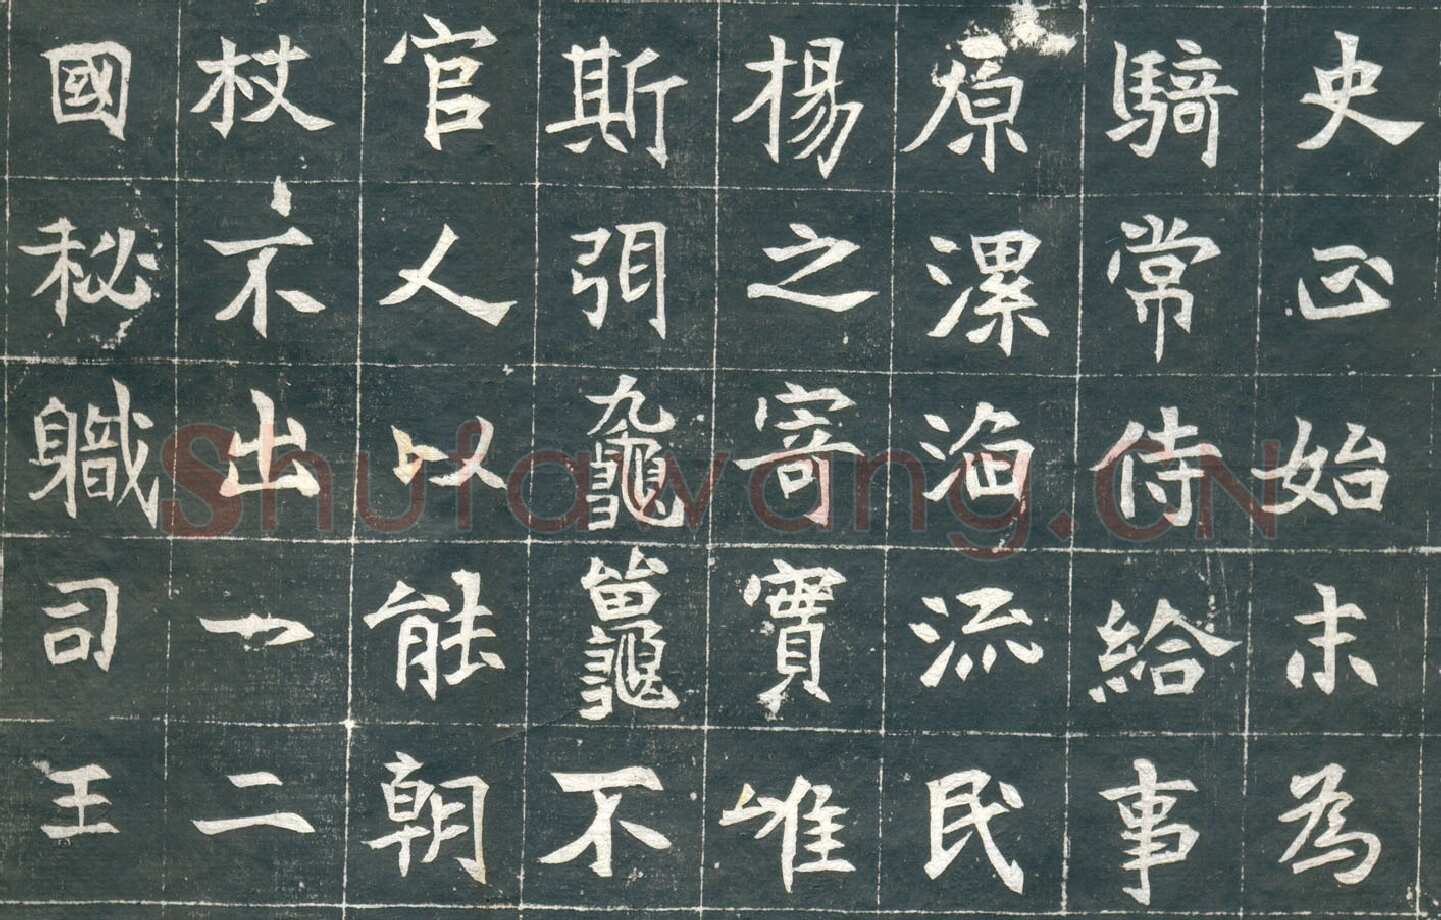 史正始末為
騎常侍給事
原漯淊流民
楊之寄實唯
斯弭不
官人以能朝
杖不出一二
國秘軄司王
Shufawang.CN